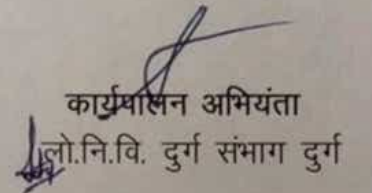 कार्यपालन अभियंता
लो.नि.वि. दुर्ग संभाग दुर्ग